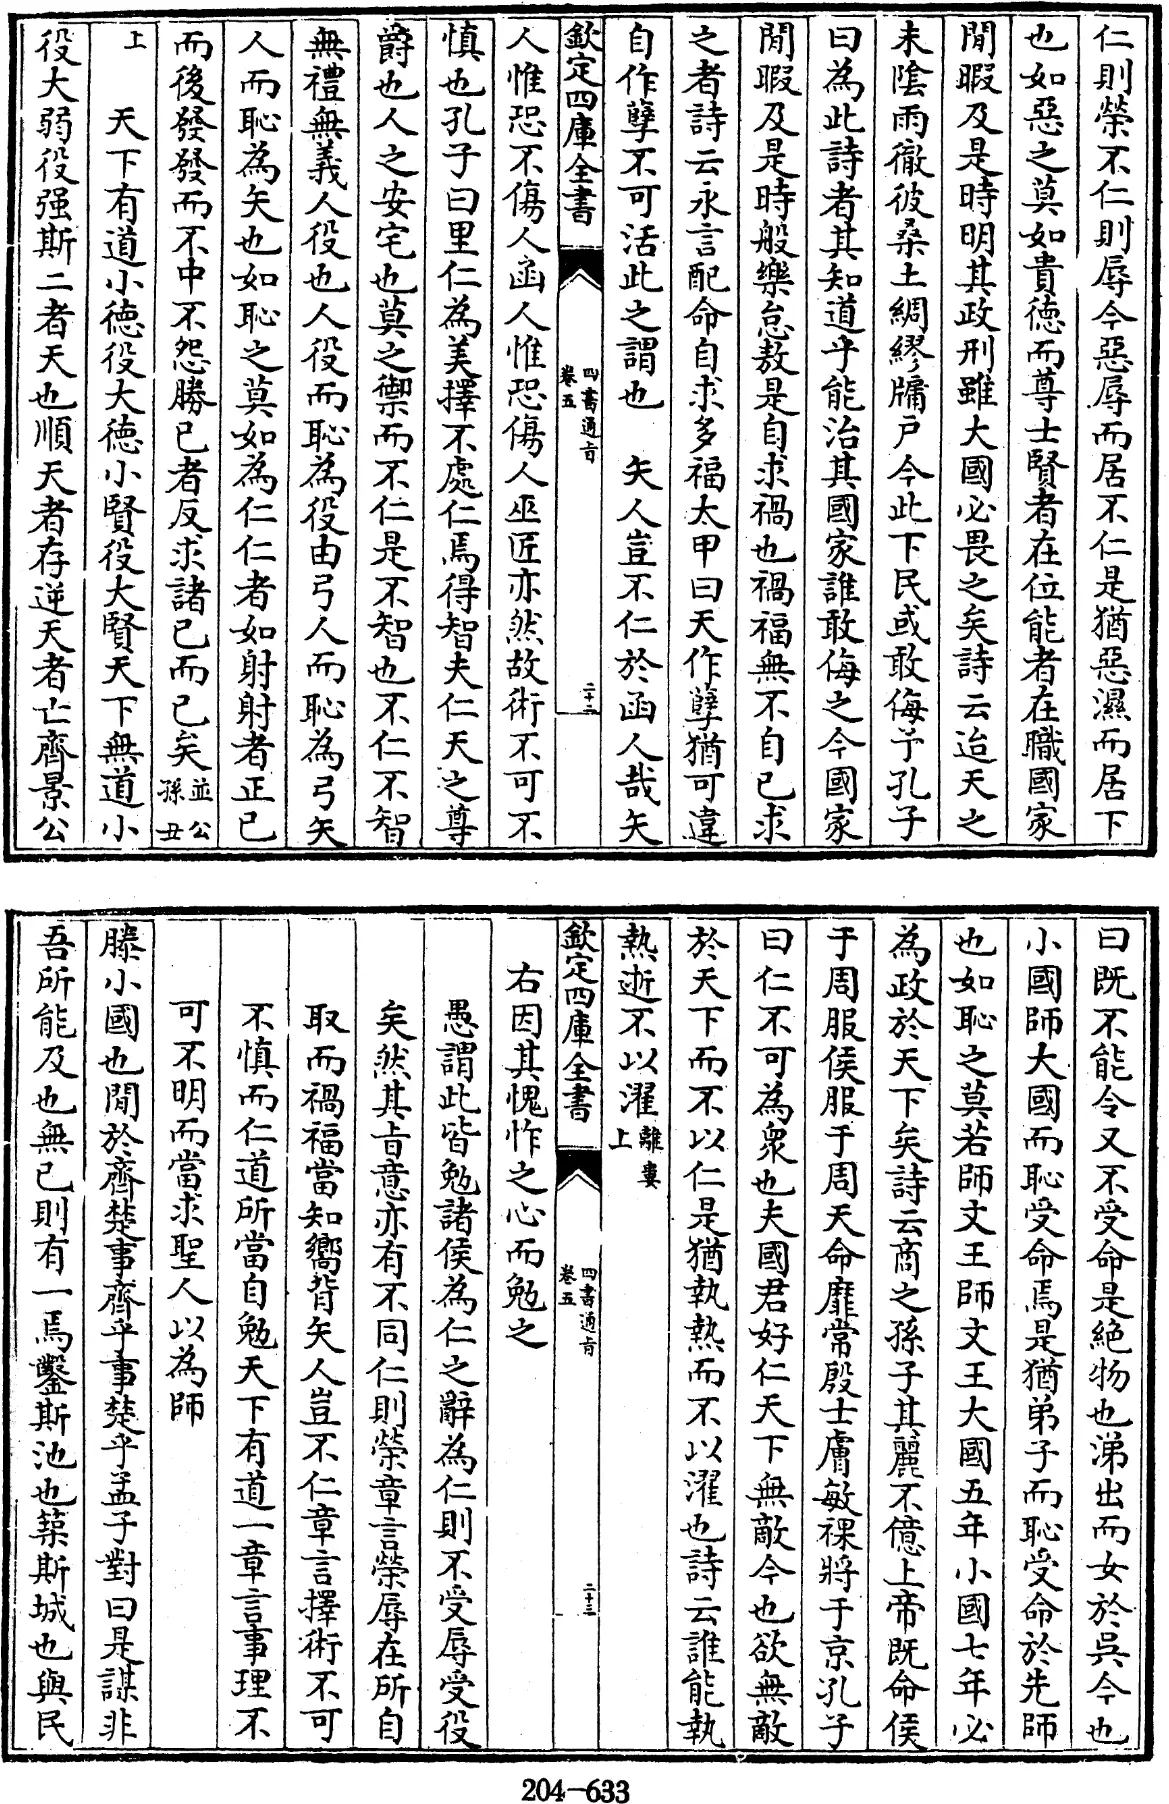 仁則榮不仁則辱今惡辱而居不仁是猶惡濕而居下
也如惡之莫如貴徳而尊士賢者在位能者在職國家
閒暇及是時明其政刑雖大國必畏之矣詩云迨天之
未陰雨徹彼桑土綢繆牖戸今此下民或敢侮予孔子
曰為此詩者其知道乎能治其國家誰敢侮之今國家
閒暇及是時般樂怠敖是自求禍也禍福無不自已求
之者詩云永言配命自求多福太甲曰天作孽猶可違
自作孽不可活此之謂也　矢人豈不仁於函人哉矢
欽定四庫全書
四書通旨
卷五
二十二
人惟恐不傷人函人惟恐傷人巫匠亦然故術不可不
慎也孔子曰里仁為美擇不處仁焉得智夫仁天之尊
爵也人之安宅也莫之禦而不仁是不智也不仁不智
無禮無義人役也人役而恥為役由弓人而恥為弓矢
人而恥為矢也如恥之莫如為仁仁者如射射者正已
而後發發而不中不怨勝已者反求諸已而已矣並公
孫丑
上
天下有道小徳役大徳小賢役大賢天下無道小
役大弱役强斯二者天也順天者存逆天者亡齊景公
曰既不能令又不受命是絶物也涕出而女於吳今也
小國師大國而恥受命焉是猶弟子而恥受命於先師
也如恥之莫若師文王師文王大國五年小國七年必
為政於天下矣詩云商之孫子其麗不億上帝既命侯
于周服侯服于周天命靡常殷士膚敏祼將于京孔子
曰仁不可為衆也夫國君好仁天下無敵今也欲無敵
於天下而不以仁是猶執熱而不以濯也詩云誰能執
熱逝不以濯離婁
上
欽定四庫全書
四書通旨
卷五
二十三
右因其愧怍之心而勉之
愚謂此皆勉諸侯為仁之辭為仁則不受辱受役
矣然其旨意亦有不同仁則榮章言榮辱在所自
取而禍福當知嚮背矢人豈不仁章言擇術不可
不慎而仁道所當自勉天下有道一章言事理不
可不明而當求聖人以為師
滕小國也閒於齊楚事齊乎事楚乎孟子對曰是謀非
吾所能及也無已則有一焉鑿斯池也築斯城也與民
204-633